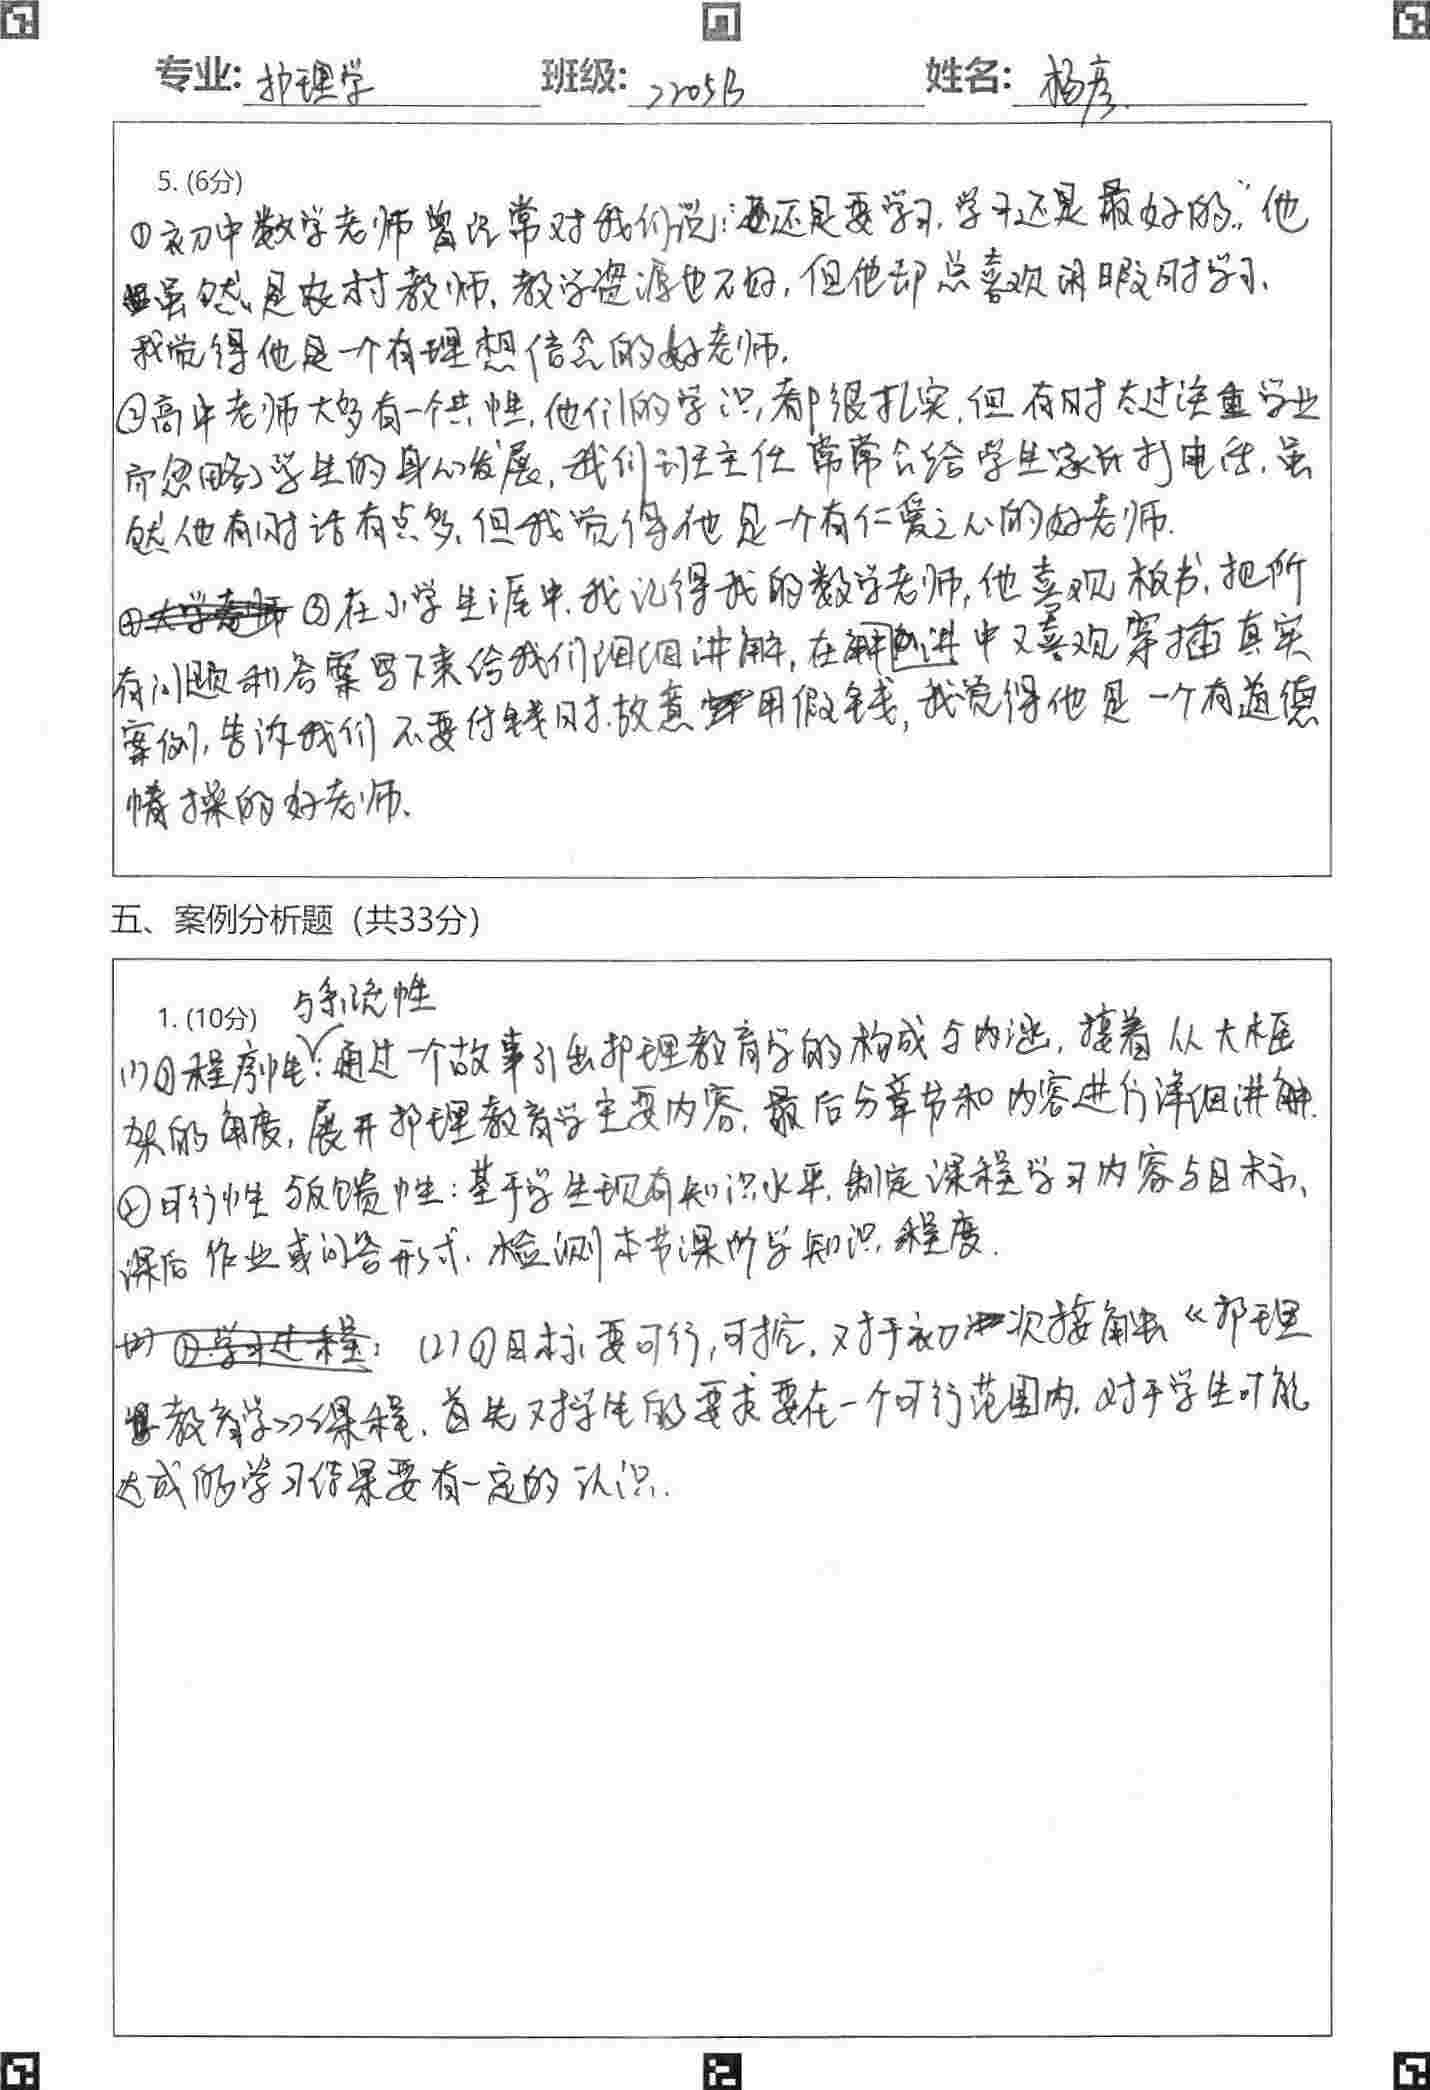 专业: 护理学 班级: 2205B 姓名: 杨彦
5. (6分)
①初中数学老师曾经常对我们说:“还是要学习,学习还是最好的”,他
虽然是农村教师,教学资源也不好,但他却总喜欢闲暇时学习,
我觉得他是一个有理想信念的好老师.
②高中老师大多有一个共性,他们的学识都很扎实,但有时太过注重学业
而忽略了学生的身心发展,我们班主任常常会给学生家长打电话,虽
然他有时话有点多,但我觉得他是一个有仁爱之心的好老师.
③在小学生涯中,我记得我的数学老师,他喜欢板书,把所
有问题和答案写下来给我们细细讲解,在讲中又喜欢穿插真实
案例,告诉我们不要付钱时故意用假钱,我觉得他是一个有道德
情操的好老师.
五、案例分析题(共33分)
与系统性
1. (10分)
(1)①程序性:通过一个故事引出护理教育学的构成与内涵,接着从大框
架的角度,展开护理教育学主要内容,最后分章节和内容进行详细讲解.
②可行性与反馈性:基于学生现有知识水平,制定课程学习内容与目标,
课后作业或问答形式,检测本节课所学知识程度.
(2)①目标要可行,可控,对于初次接触《护理
教育学》课程,首先对学生的要求要在一个可行范围内,对于学生可能
达成的学习结果要有一定的认识.